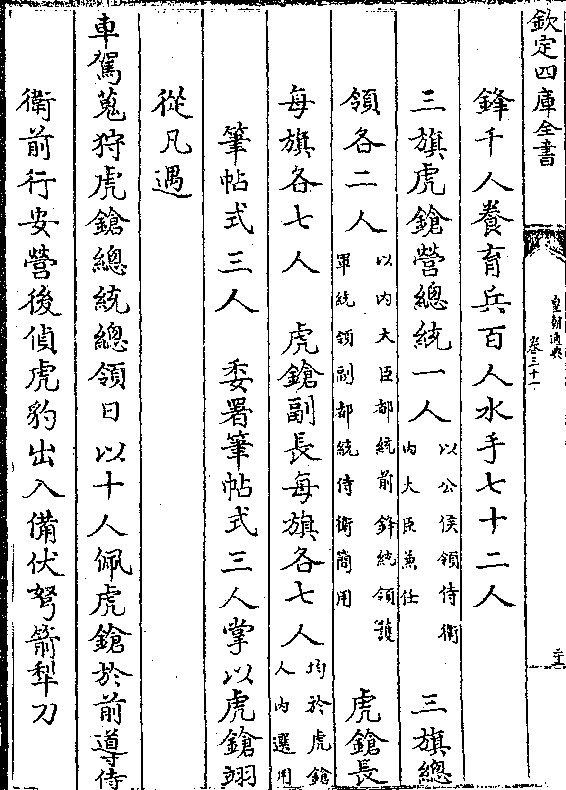 欽定四庫全書
皇朝通典
卷三十一
鋒千人養育兵百人水手七十二人
三旗虎鎗營總統一人以公侯領侍衛內大臣兼任 三旗總
領各二人以內大臣都統前鋒統領護軍統領副都統侍衛簡用 虎鎗長
每旗各七人 虎鎗副長每旗各七人均於虎鎗人內選用
筆帖式三人 委署筆帖式三人掌以虎鎗翊
從凡遇
車駕蒐狩虎鎗總統總領日以十人佩虎鎗於前導侍
衛前行安營後偵虎豹出入備伏弩箭犁刀